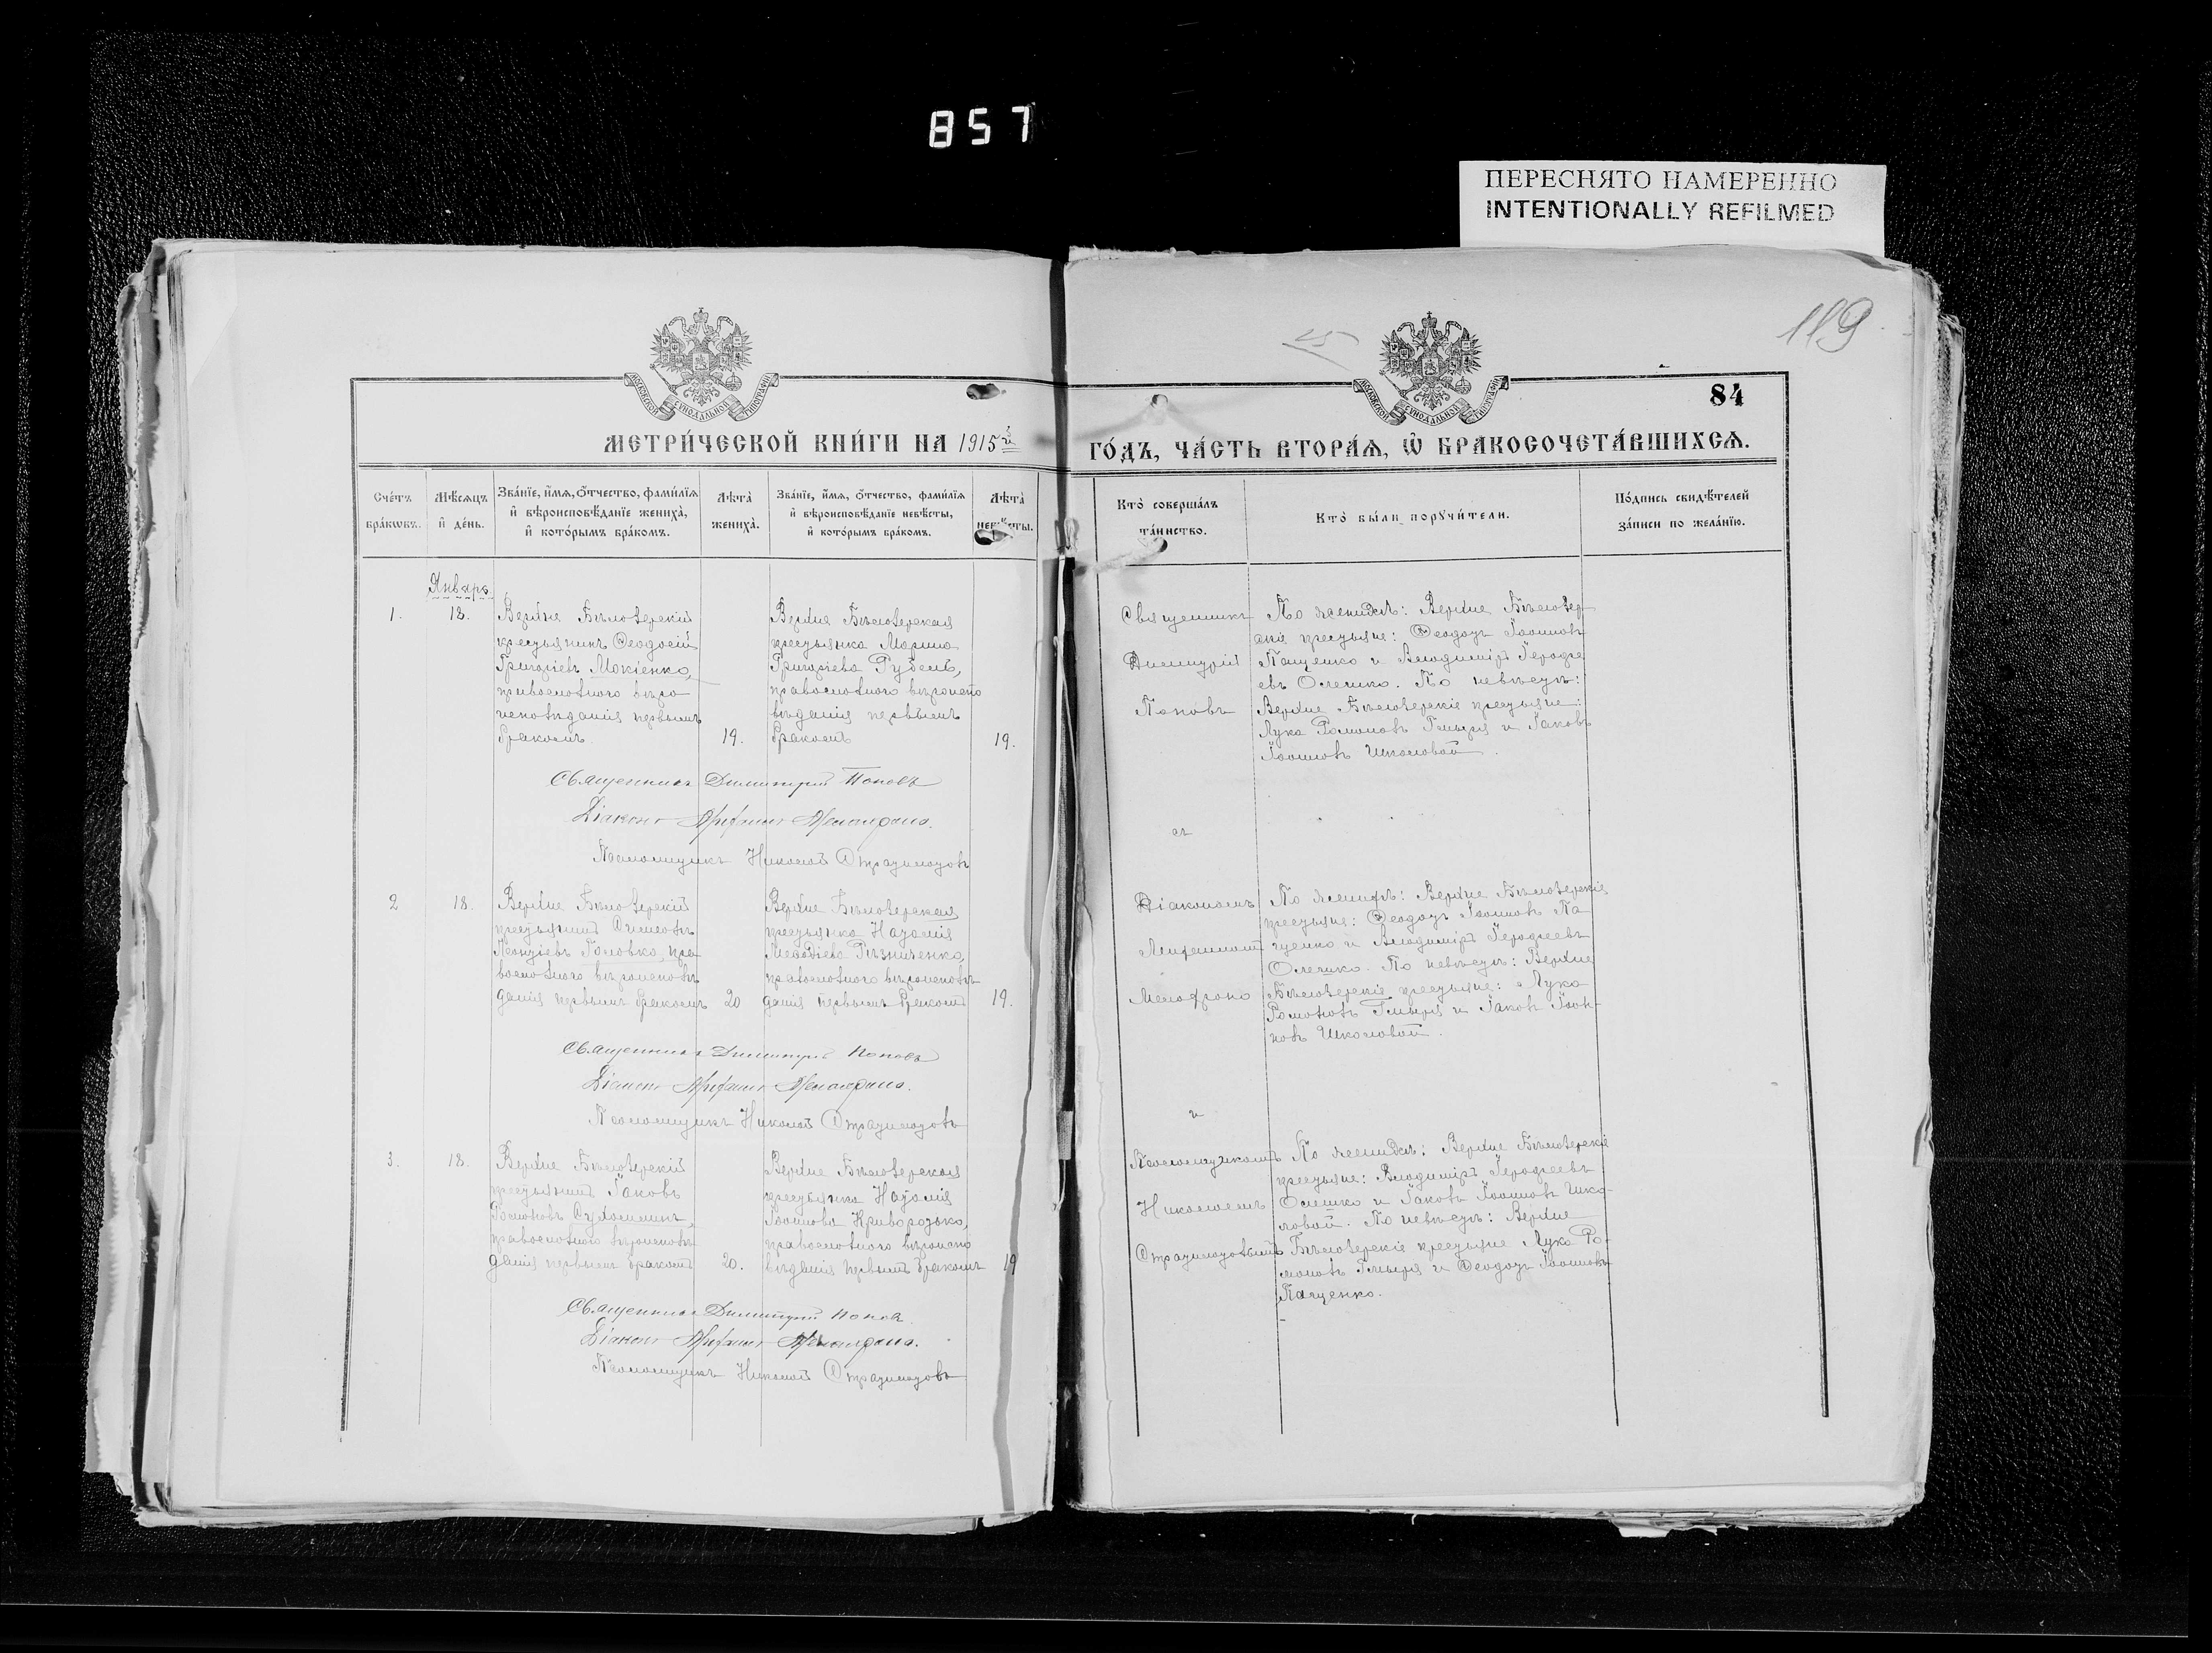 857
ПЕРЕСНЯТО НАМЕРЕННО
INTENTIONALLY REFILMED
119
МОСКОВСКОЙ СѴНОДАЛЬНОЙ ТИПОГРАФІИ
МОСКОВСКОЙ СѴНОДАЛЬНОЙ ТИПОГРАФІИ
84
МЕТРИ́ЧЕСКОЙ КНИ́ГИ НА 1915й
ГО́ДЪ, ЧА́СТЬ ВТОРА́Ѧ, Ѽ БРАКОСОЧЕТА́ВШИХСѦ.
Сче́тъ бра́кѡвъ.
Мѣ́сѧцъ и҆ де́нь.
Зва́нїе, и҆́мѧ, ѻ҆́тчество, фами́лїѧ и҆ вѣроисповѣ́данїе жениха̀, и҆ кото́рымъ бра́комъ.
Лѣта̀ жениха̀.
Зва́нїе, и҆́мѧ, ѻ҆́тчество, фами́лїѧ и҆ вѣроисповѣ́данїе невѣ́сты, и҆ кото́рымъ бра́комъ.
Лѣта̀ невѣ́сты.
Кто̀ соверша́лъ та́инство.
Кто̀ бы́ли порꙋчи́тели.
По́дпись свидѣ́телей за́писи по жела́нїю.
Январь
1.
18.
Верхне Бѣлозерскій
крестьянинъ Ѳеодосій
Григоріевъ Мокіенко,
православнаго вѣро
исповѣданія первымъ
бракомъ.
19.
Верхне Бѣлозерская
крестьянка Марина
Григоріева Рубель,
православнаго вѣроиспо
вѣданія первымъ
бракомъ
19.
Священникъ
Димитрій
Поповъ
По женихѣ: Верхне Бѣлозер
скіе крестьяне: Ѳеодотъ Іоанновъ
Пащенко и Владиміръ Іероѳе
евъ Олешко. По невѣстѣ:
Верхне Бѣлозерскіе крестьяне:
Лука Романовъ Гмыря и Іаковъ
Іоанновъ Школовой.
Священникъ Димитрій Поповъ
Діаконъ
Псаломщикъ Николай Стратилатовъ
съ
2
18.
Верхне Бѣлозерскій
крестьянинъ Симеонъ
Леонтіевъ Головко, пра
вославнаго вѣроисповѣ
данія первымъ бракомъ
20
Верхне Бѣлозерская
крестьянка Наталія
Меѳодіева Рѣзниченко,
православнаго вѣроисповѣ
данія первымъ бракомъ
19.
Діакономъ
По женихѣ: Верхне Бѣлозерскіе
крестьяне: Ѳеодотъ Іоанновъ Па
щенко и Владиміръ Іероѳеевъ
Олешко. По невѣстѣ: Верхне
Бѣлозерскіе крестьяне: Лука
Романовъ Гмыря и Іаковъ Іоан-
новъ Школовой.
Священникъ Димитрій Поповъ
Діаконъ
Псаломщикъ Николай Стратилатовъ
и
3.
18.
Верхне Бѣлозерскій
крестьянинъ Іаковъ
Романовъ
православнаго вѣроисповѣ
данія первымъ бракомъ
20.
Верхне Бѣлозерская
крестьянка Наталія
Іоаннова
православнаго вѣроиспо
вѣданія первымъ бракомъ
19
Псаломщикомъ
Николаемъ
Стратилатовымъ
По женихѣ: Верхне Бѣлозерскіе
крестьяне: Владиміръ Іероѳеевъ
Олешко и Іаковъ Іоанновъ Шко-
ловой. По невѣстѣ: Верхне
Бѣлозерскіе крестьяне Лука Ро-
мановъ Гмыря и Ѳеодотъ Іоанновъ
Пащенко.
Священникъ Димитрій Поповъ
Діаконъ
Псаломщикъ Николай Стратилатовъ